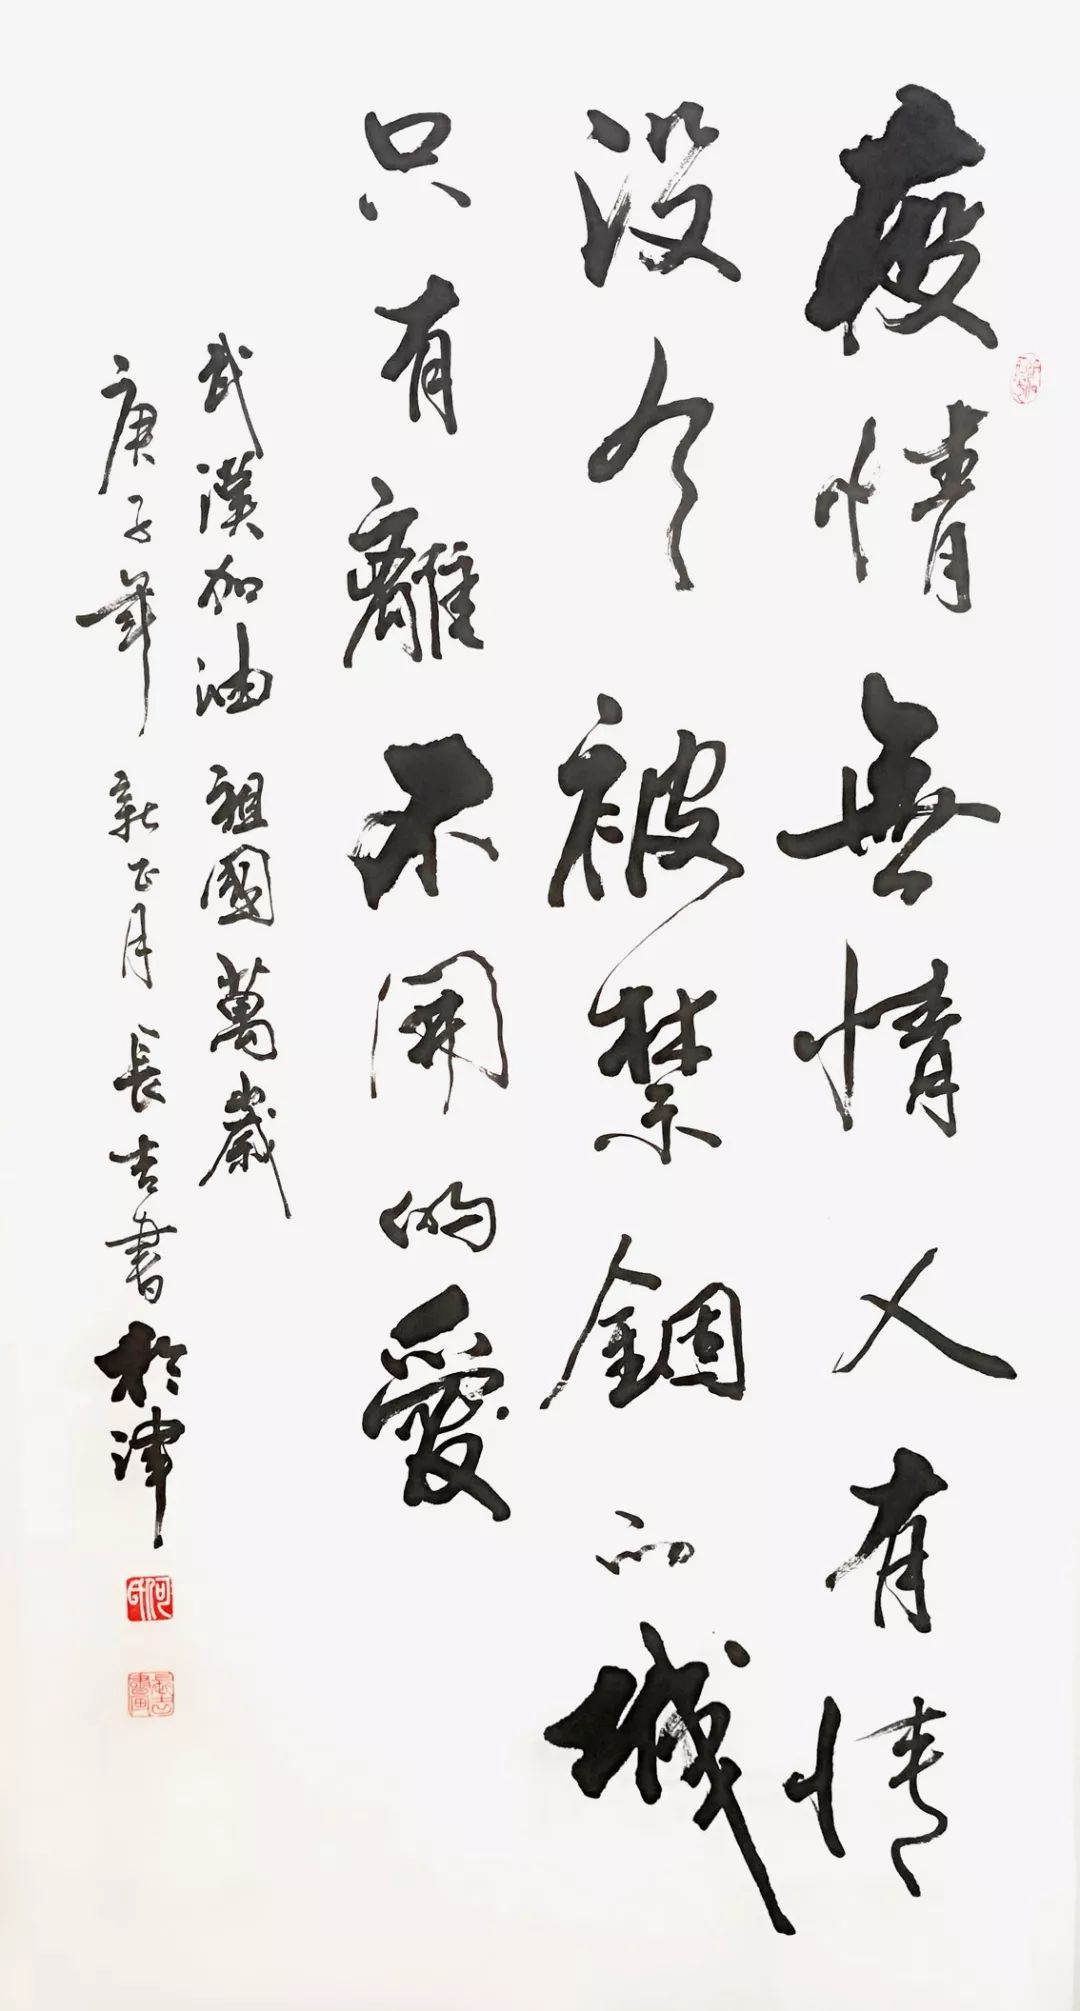 疫情無情人有情
没人被禁錮的城
只有離不開的愛
武漢加油 祖國萬歲
庚子年 新正月 長吉書於津